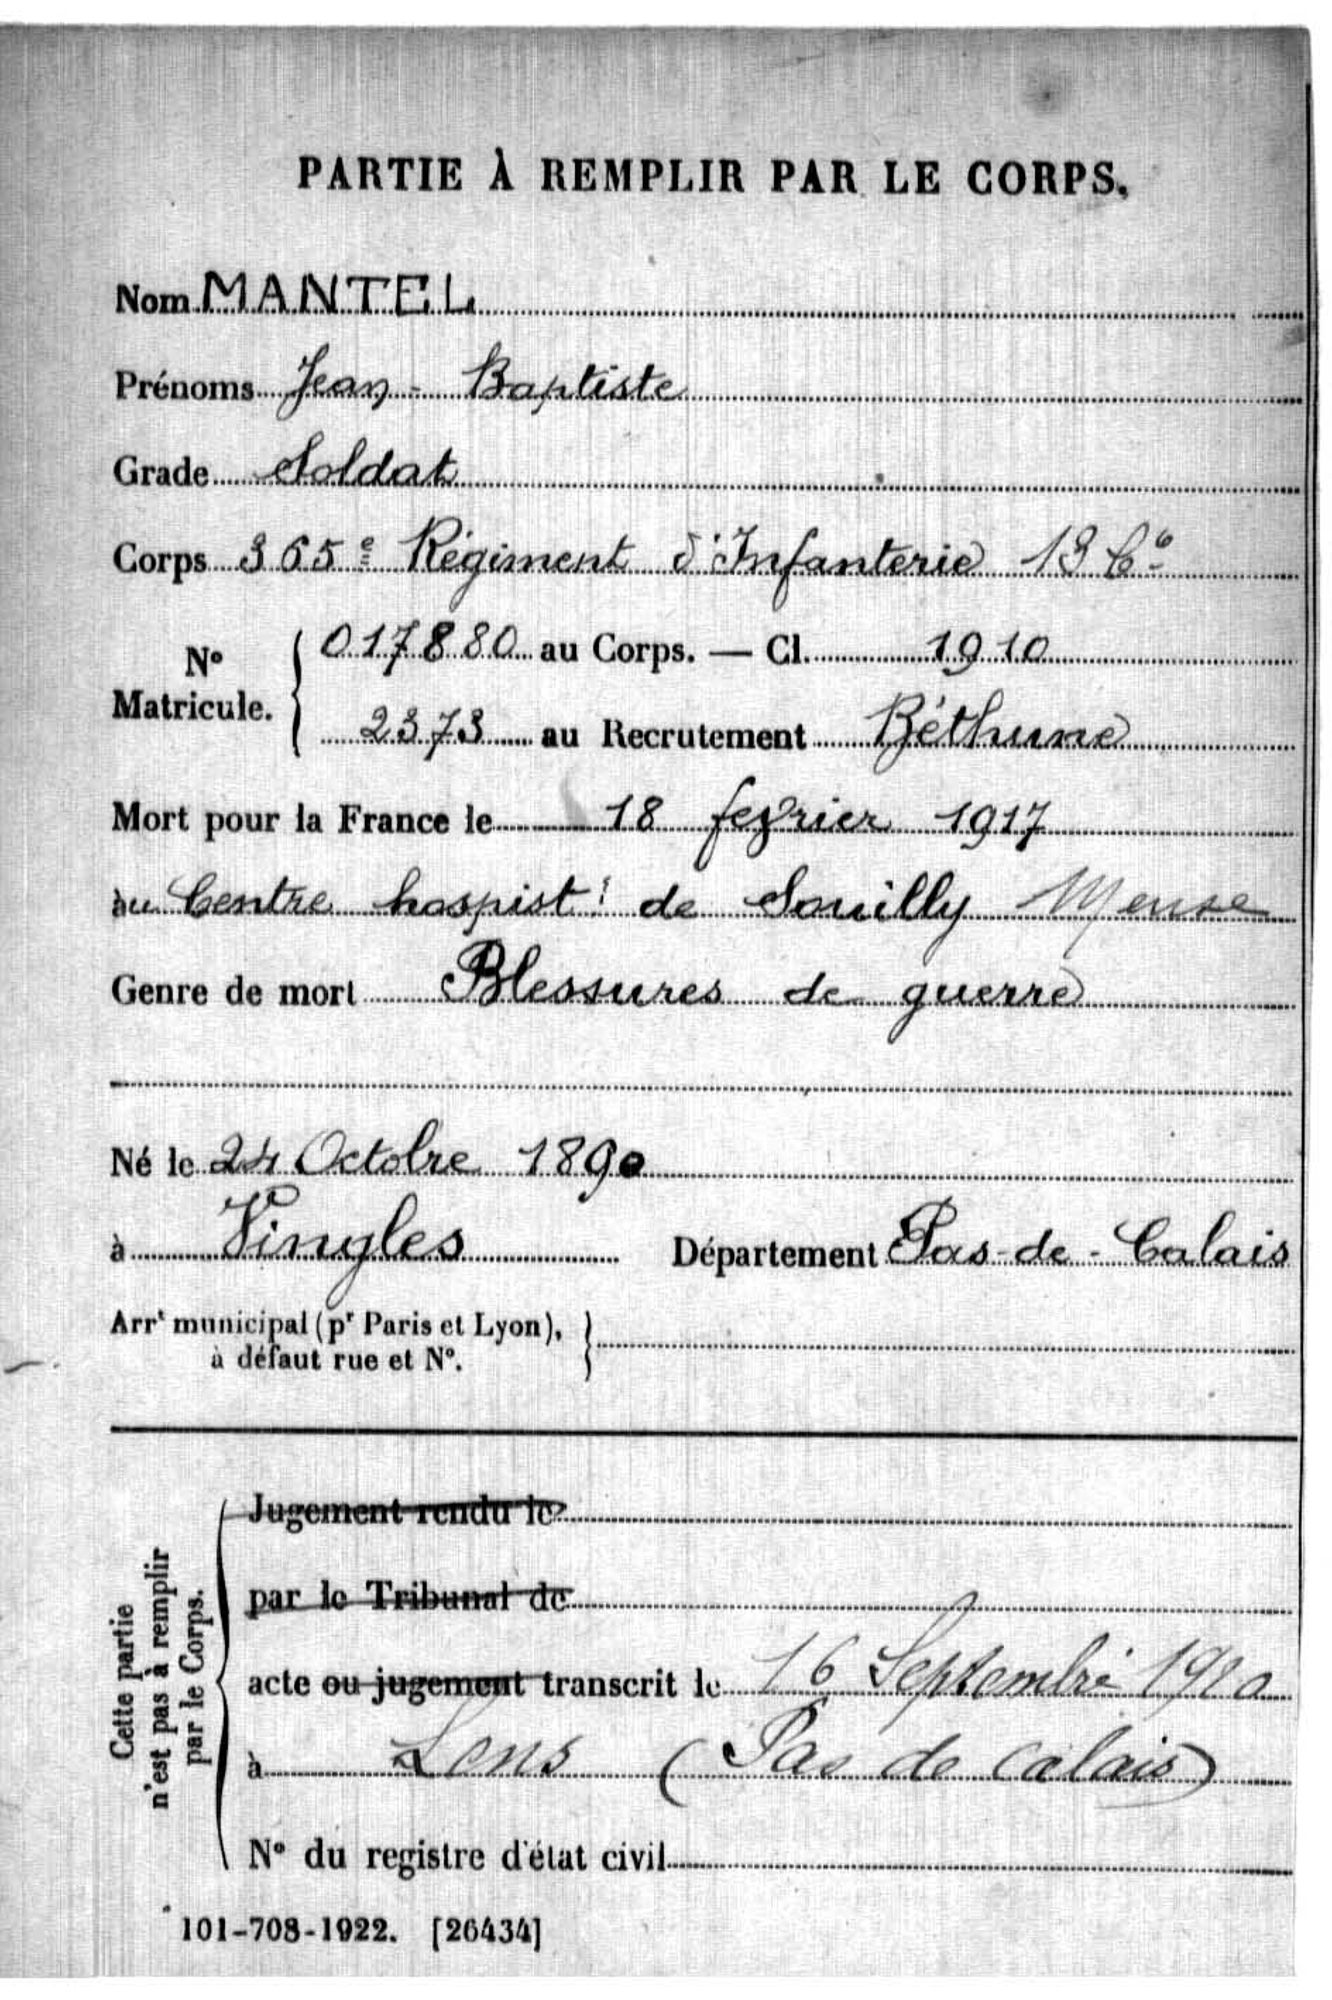 PARTIE À REMPLIR PAR LE CORPS.
Nom MANTEL
Prénoms Jean - Baptiste
Grade Soldat
Corps 365e Régiment d'Infanterie 13 Cie
No Matricule. { 017880 au Corps. — Cl. 1910
2373 au Recrutement Béthune
Mort pour la France le 18 fevrier 1917
au Centre hospist! de Souilly Meuse
Genre de mort Blessures de guerre
Né le 24 Octobre 1890
à Vingles Département Pas-de-Calais
Arrt municipal (pr Paris et Lyon),
à défaut rue et No.
Cette partie
n'est pas à remplir
par le Corps.
Jugement rendu le
par le Tribunal de
acte ou jugement transcrit le 16 Septembre 1920
à Lens (Pas de Calais)
No du registre d'état civil
101-708-1922. [26434]